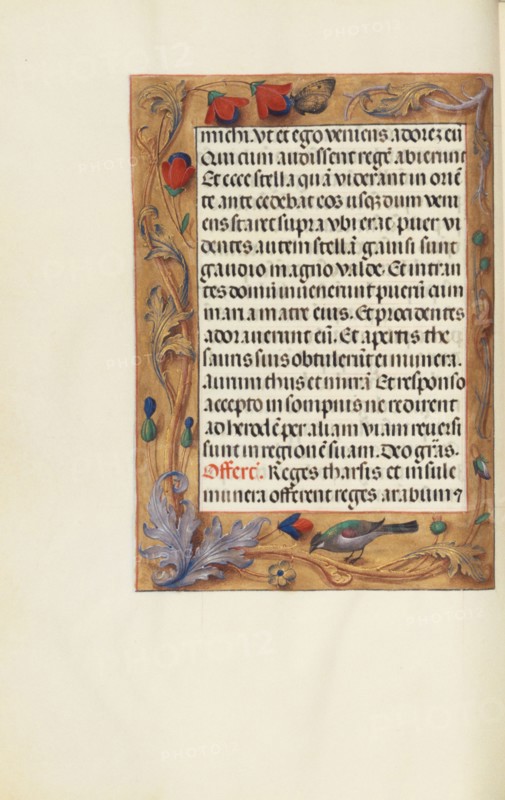 michi. vt et ego veniens adorez eū
Qui cum audissent regē abierunt
Et ecce stella quā viderant in oriē
te ante cedebat eos usq dum veni
ens staret supra vbi erat puer vi
dentes autem stellā gauisi sunt
gaudio magno valde. Et intran
tes domū inuenerunt puerū cum
maria matre eius. Et procidentes
adorauerunt eū. Et apertis the
sauris suis obtulerūt ei munera.
aurum thus et mirrā Et responso
accepto in sompnis ne redirent
ad herodē per aliam viam reuersi
sunt in regionē suam. Deo grās.
Offerē. Reges tharsis et insule
munera offerent reges arabum ⁊
PHOTO12
PHOTO12
PHOTO12
PHOTO12
PHOTO12